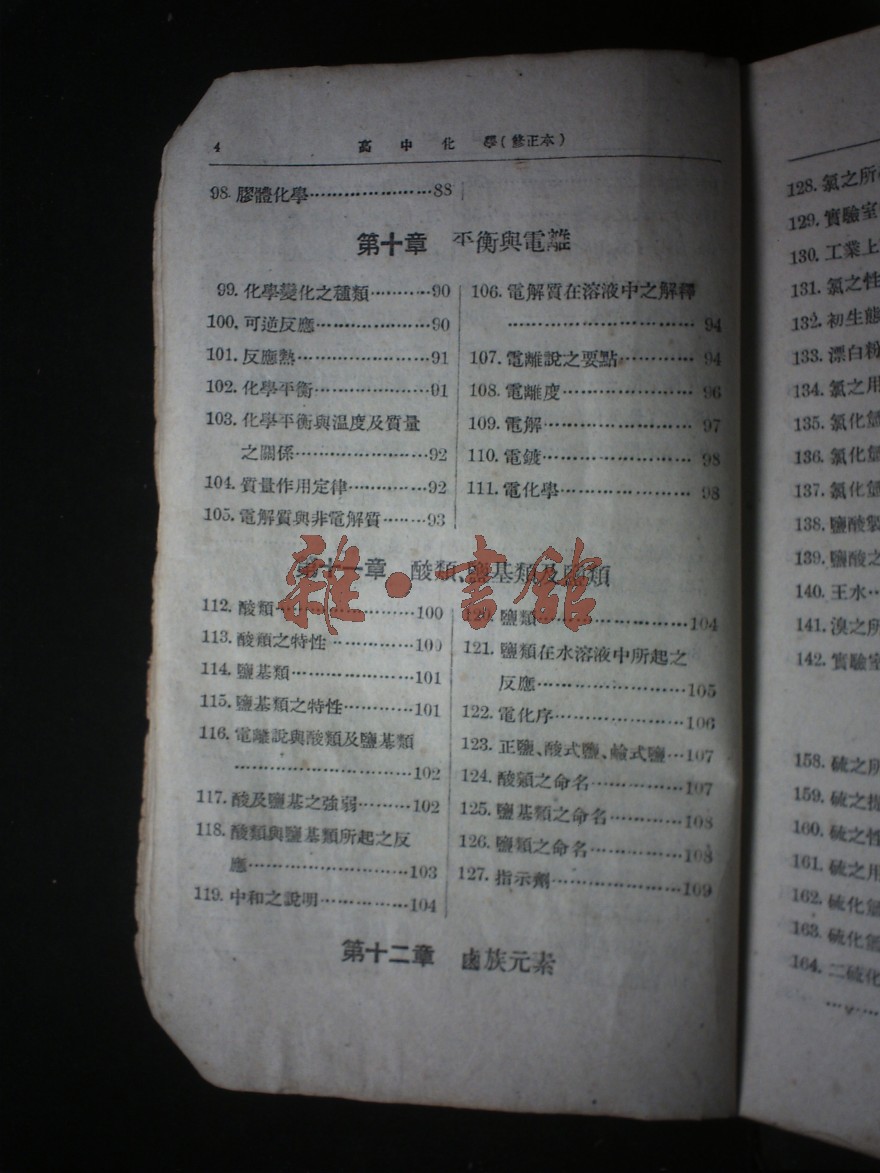 4 高中化學(修正本)
98. 膠體化學……………………88
第十章 平衡與電離
99. 化學變化之種類…………90
100. 可逆反應…………………90
101. 反應熱……………………91
102. 化學平衡…………………91
103. 化學平衡與温度及質量
之關係……………………92
104. 質量作用定律……………92
105. 電解質與非電解質………93
106. 電解質在溶液中之解釋
……………………………94
107. 電離說之要點……………94
108. 電離度……………………96
109. 電解………………………97
110. 電鍍………………………98
111. 電化學……………………98
第十一章 酸類、鹽基類及鹽類
112. 酸類………………………100
113. 酸類之特性………………100
114. 鹽基類……………………101
115. 鹽基類之特性……………101
116. 電離說與酸類及鹽基類
……………………………102
117. 酸及鹽基之強弱…………102
118. 酸類與鹽基類所起之反
應…………………………103
119. 中和之說明………………104
120. 鹽類………………………104
121. 鹽類在水溶液中所起之
反應………………………105
122. 電化序……………………106
123. 正鹽、酸式鹽、鹼式鹽…107
124. 酸類之命名………………107
125. 鹽基類之命名……………108
126. 鹽類之命名………………108
127. 指示劑……………………109
第十二章 鹵族元素
雜·書館
128. 氯之所
129. 實驗室
130. 工業上
131. 氯之性
132. 初生態
133. 漂白粉
134. 氯之用
135. 氯化
136. 氯化
137. 氯化
138. 鹽酸製
139. 鹽酸之
140. 王水…
141. 溴之所
142. 實驗室
158. 硫之所
159. 硫之
160. 硫之性
161. 硫之用
162. 硫化
163. 硫化
164. 二硫化